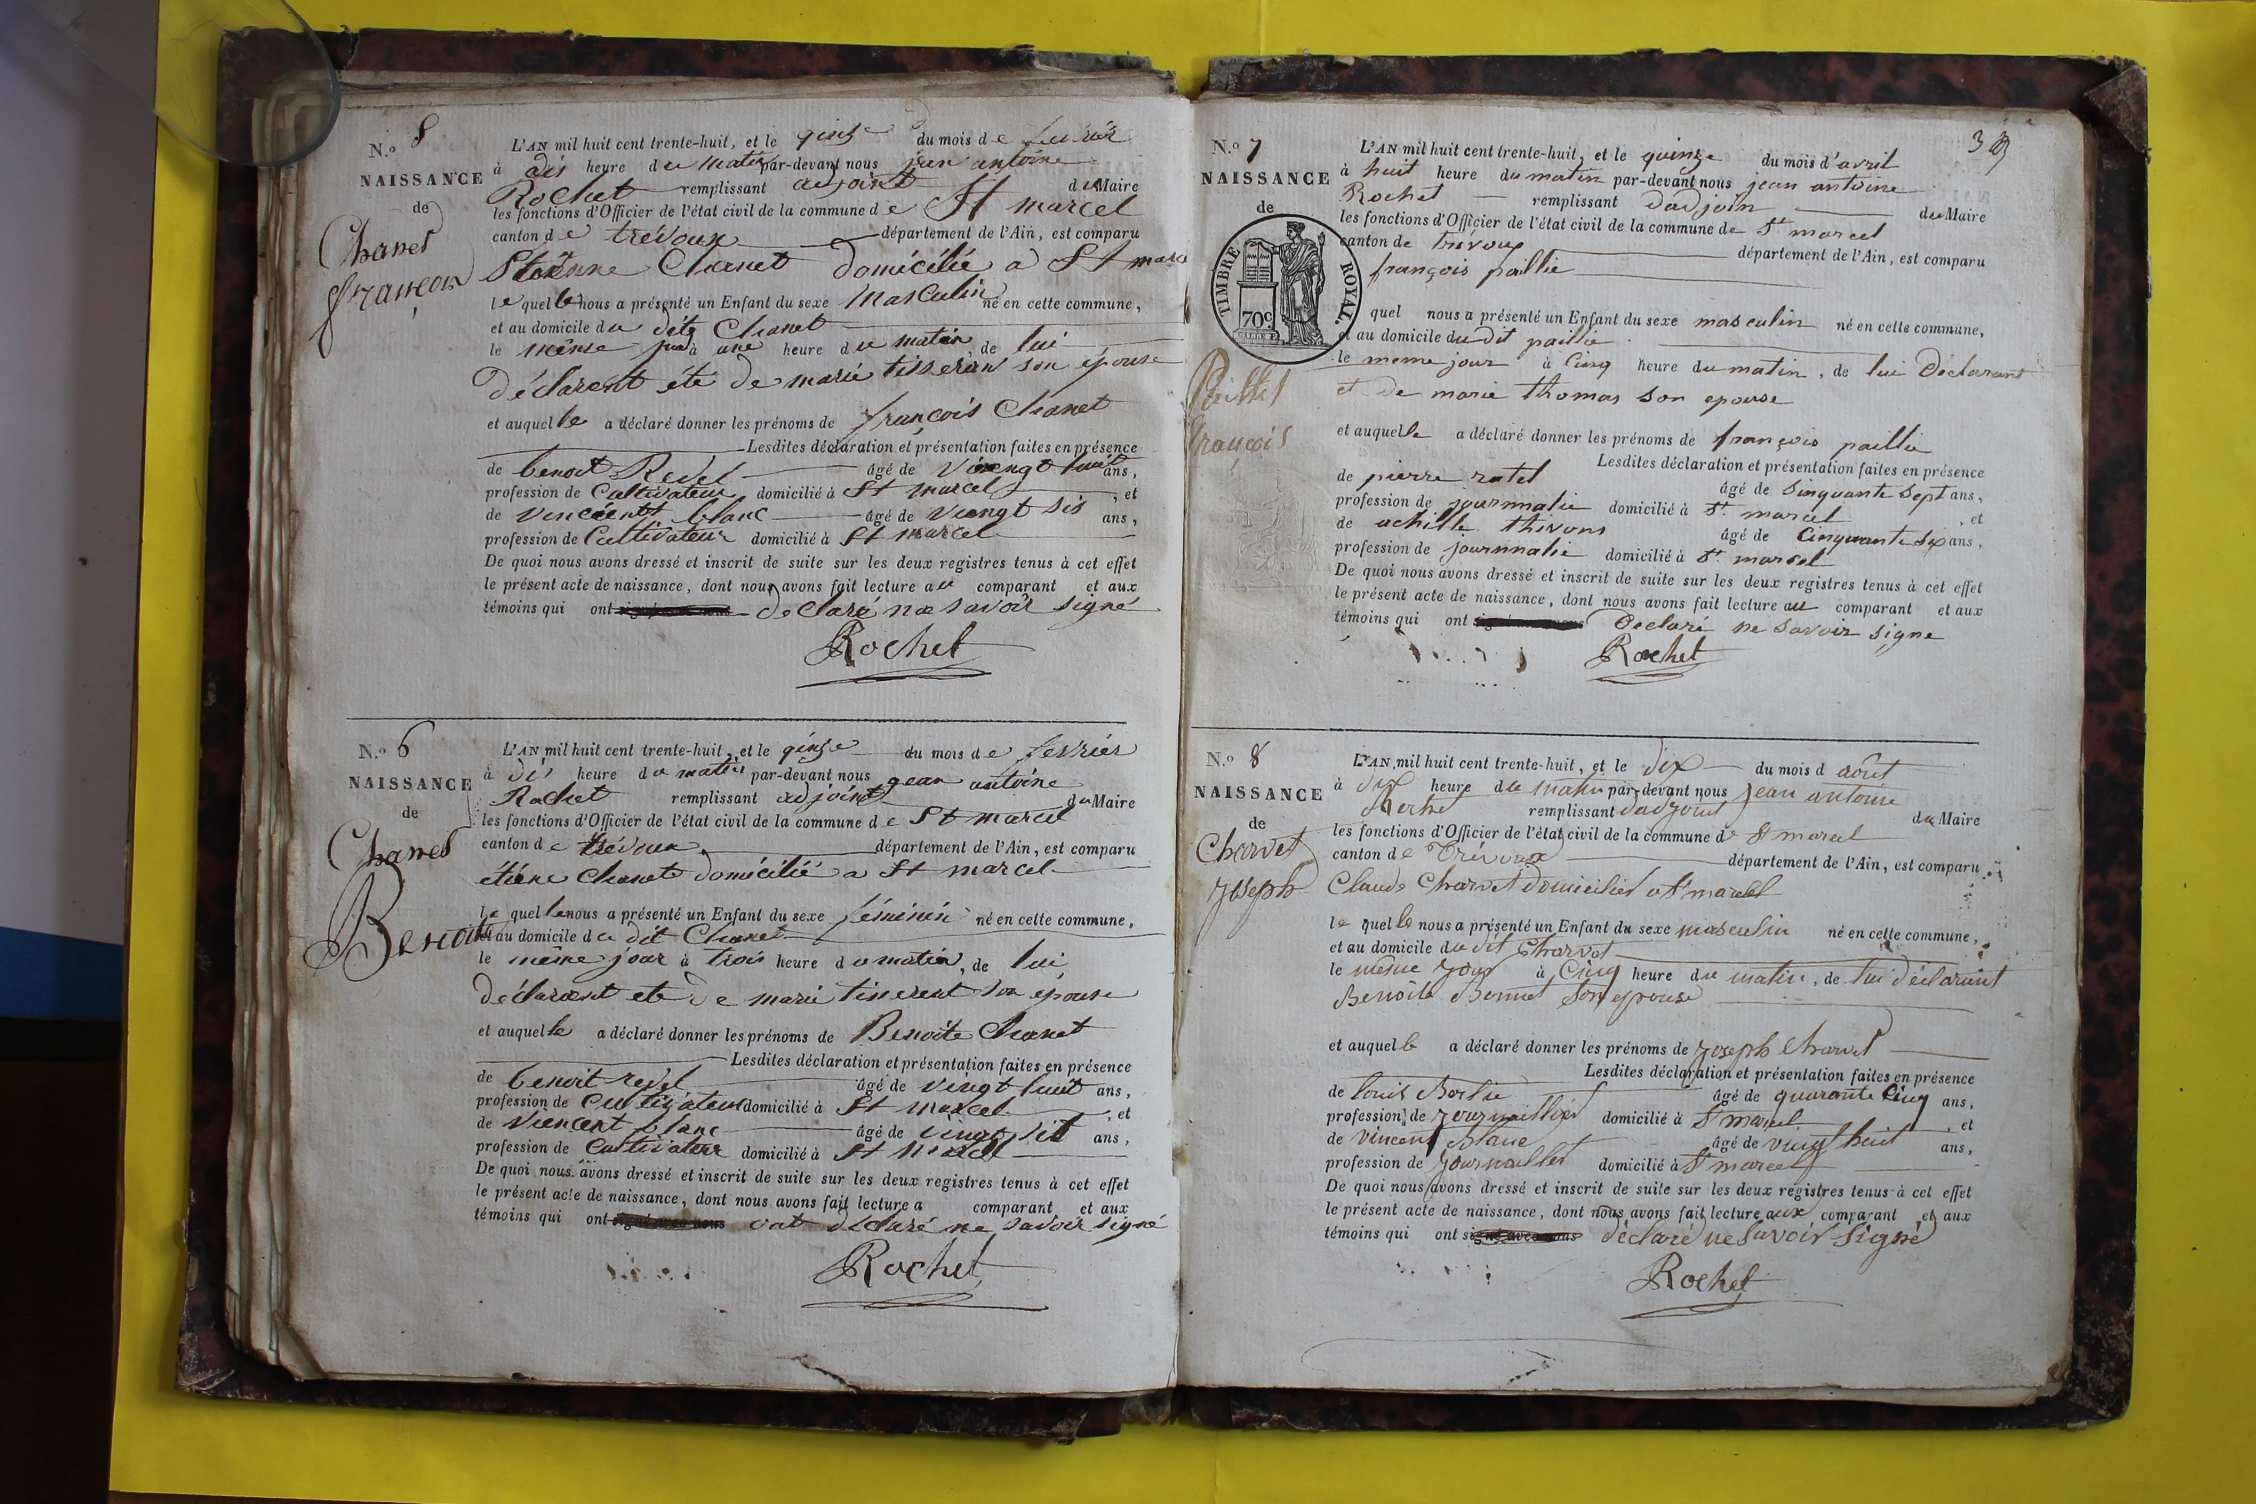 N.º 8
NAISSANCE
de
Chanet
françois
L'AN mil huit cent trente-huit, et le qinse du mois de fevrier
à dis heure du matin par-devant nous jean antoine
Rochet remplissant adjoint du Maire
les fonctions d'Officier de l'état civil de la commune de St marcel
canton de trévoux département de l'Ain, est comparu
Etienne Chanet domicilié a St marcel
le quel le nous a présenté un Enfant du sexe masculin né en cette commune,
et au domicile du dit Chanet
le même jour à une heure du matin, de lui
déclarent été de marie tisseran son épouse
et auquel le a déclaré donner les prénoms de françois Chanet
Lesdites déclaration et présentation faites en présence
de benoit Revel âgé de viengt huit ans,
profession de Cultivateur domicilié à St marcel, et
de vincient blanc âgé de viengt sis ans,
profession de Cultivateur domicilié à St marcel
De quoi nous avons dressé et inscrit de suite sur les deux registres tenus à cet effet
le présent acte de naissance, dont nous avons fait lecture au comparant et aux
témoins qui ont declaré ne savoir signé
Rochet
N.º 6
NAISSANCE
de
Chanet
Benoite
L'AN mil huit cent trente-huit, et le qinse du mois de fevrier
à dis heure du matin par-devant nous jean antoine
Rochet remplissant adjoint du Maire
les fonctions d'Officier de l'état civil de la commune de St marcel
canton de trévoux département de l'Ain, est comparu
etiene Chanet domicilié a St marcel
Le quel le nous a présenté un Enfant du sexe féminin né en cette commune,
et au domicile du dit Chanet
le même jour à trois heure du matin, de lui
déclarent ete de marie tisserent son epouse
et auquel le a déclaré donner les prénoms de Benoite Chanet
Lesdites déclaration et présentation faites en présence
de benoit revel âgé de vingt huit ans,
profession de Cultivateur domicilié à St marcel, et
de viencent blanc âgé de vingt sis ans,
profession de Cultivateur domicilié à St marcel
De quoi nous avons dressé et inscrit de suite sur les deux registres tenus à cet effet
le présent acte de naissance, dont nous avons fait lecture a comparant et aux
témoins qui ont ont déclaré ne savoir signé
Rochet
N.º 7
NAISSANCE
de
TIMBRE ROYAL.
70c.
Paillet
françois
L'AN mil huit cent trente-huit, et le quinze du mois d'avril
à huit heure du matin par-devant nous jean antoine
Rochet remplissant dadjoin du Maire
les fonctions d'Officier de l'état civil de la commune de St marcel
canton de trévoux département de l'Ain, est comparu
françois paillie
quel nous a présenté un Enfant du sexe masculin né en cette commune,
et au domicile du dit paillie
le meme jour à cinq heure du matin, de lui Déclarant
et de marie thomas son epouse
et auquel le a déclaré donner les prénoms de françois paillie
Lesdites déclaration et présentation faites en présence
de pierre ratel âgé de sinquante sept ans,
profession de journnalie domicilié à St marcel, et
de achille thivons âgé de Cinquante six ans,
profession de journnalie domicilié à St marcel
De quoi nous avons dressé et inscrit de suite sur les deux registres tenus à cet effet
le présent acte de naissance, dont nous avons fait lecture au comparant et aux
témoins qui ont declaré ne savoir signe
Rochet
N.º 8
NAISSANCE
de
Charvet
Joseph
L'AN mil huit cent trente-huit, et le dix du mois d août
à dix heure du matin par-devant nous jean antoine
Rochet remplissant dadjoint du Maire
les fonctions d'Officier de l'état civil de la commune de St marcel
canton de Trévoux département de l'Ain, est comparu
Claude Charvet domicilier a St marcel
le quel le nous a présenté un Enfant du sexe masculin né en cette commune,
et au domicile du dit Charvet
le même jour à Cinq heure du matin, de lui déclarent
Benoite Bonnet son epouse
et auquel le a déclaré donner les prénoms de Joseph Charvet
Lesdites déclaration et présentation faites en présence
de louis âgé de quarante Cinq ans,
profession de journallier domicilié à St marcel, et
de vincent Blanc âgé de vingt huit ans,
profession de journallier domicilié à St marcel
De quoi nous avons dressé et inscrit de suite sur les deux registres tenus à cet effet
le présent acte de naissance, dont nous avons fait lecture aux comparant et aux
témoins qui ont déclaré ne Savoir Signé
Rochet